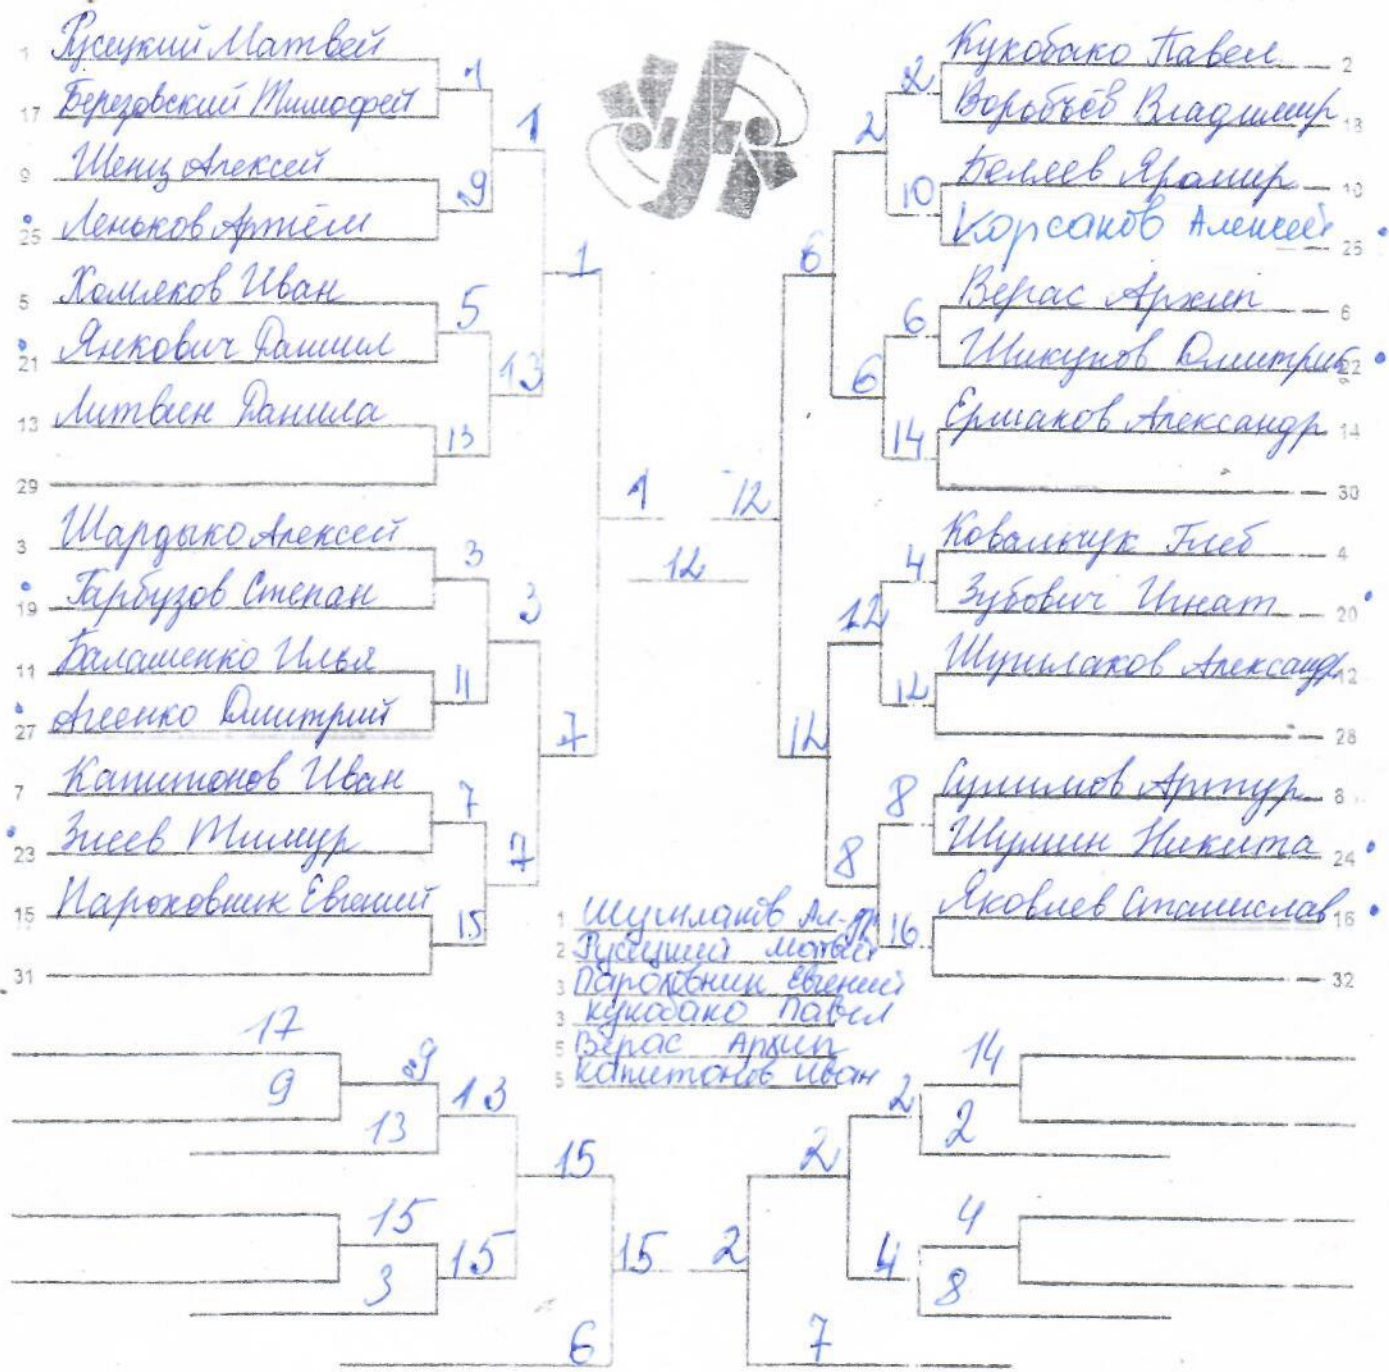 1 Русецкий Матвей
17 Березовский Тимофей
9 Шенц Алексей
25 Леньков Артём
5 Хомяков Иван
21 Янкович Даниил
13 Литвин Данила
29
3 Шардыко Алексей
19 Гарбузов Степан
11 Балашенко Илья
27 Агеенко Дмитрий
7 Капитонов Иван
23 Змеев Тимур
15 Пароховник Евгений
31
1
9
5
13
3
11
7
15
1
13
3
7
1
7
1
12
12
Кукобако Павел 2
Воробьёв Владимир 18
Беляев Яромир 10
Корсаков Алексей 26
Верас Архип 6
Шикунов Дмитрий 22
Ермаков Александр 14
30
Ковальчук Глеб 4
Зубович Игнат 20
Шушлаков Александр 12
28
Сулимов Артур 8
Шумин Никита 24
Яковлев Станислав 16
32
2
10
6
14
4
12
8
16
2
6
12
8
6
12
1 Шушлаков Ал-др
2 Русецкий Матвей
3 Пароховник Евгений
3 Кукобако Павел
5 Верас Архип
5 Капитонов Иван
17
9
9
13
13
15
3
15
15
6
15
14
2
2
4
8
4
2
7
2